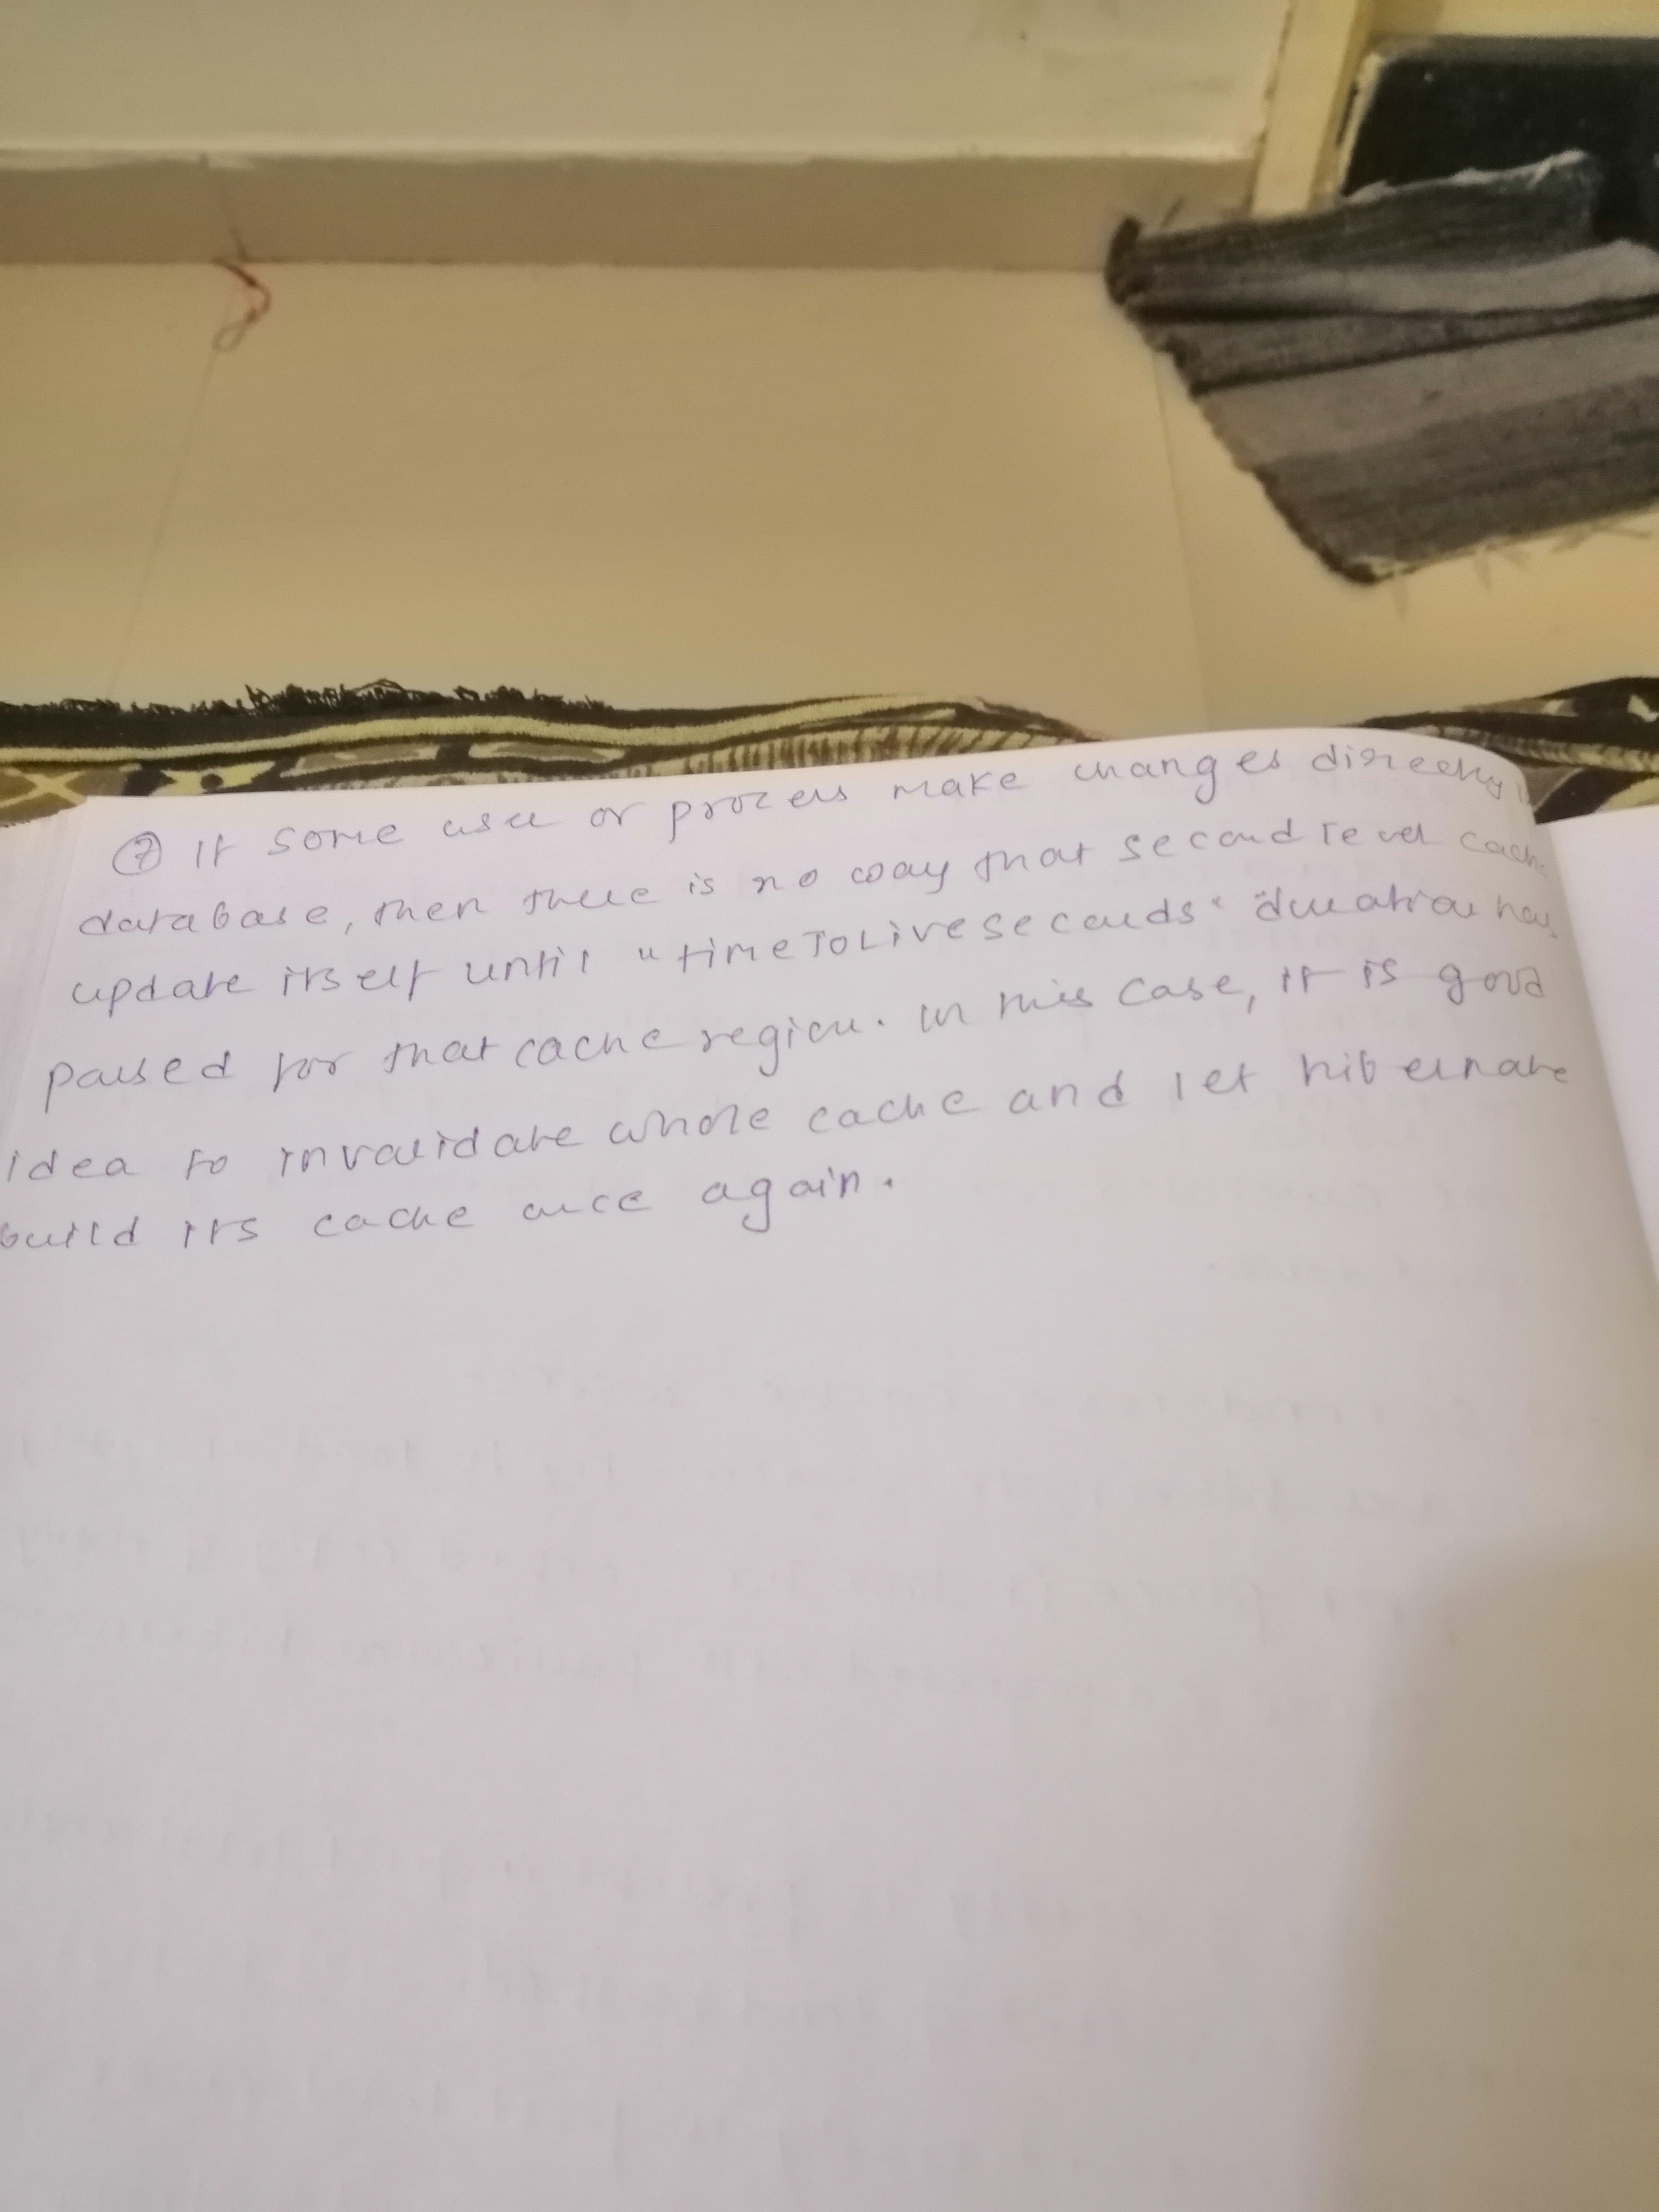 ⑦ If some user or process make changes directly in
database, then there is no way that second level cache
update itself until "timeToLiveSeconds" duration has
passed for that cache region. In this case, it is good
idea to invalidate whole cache and let hibernate
build its cache once again.